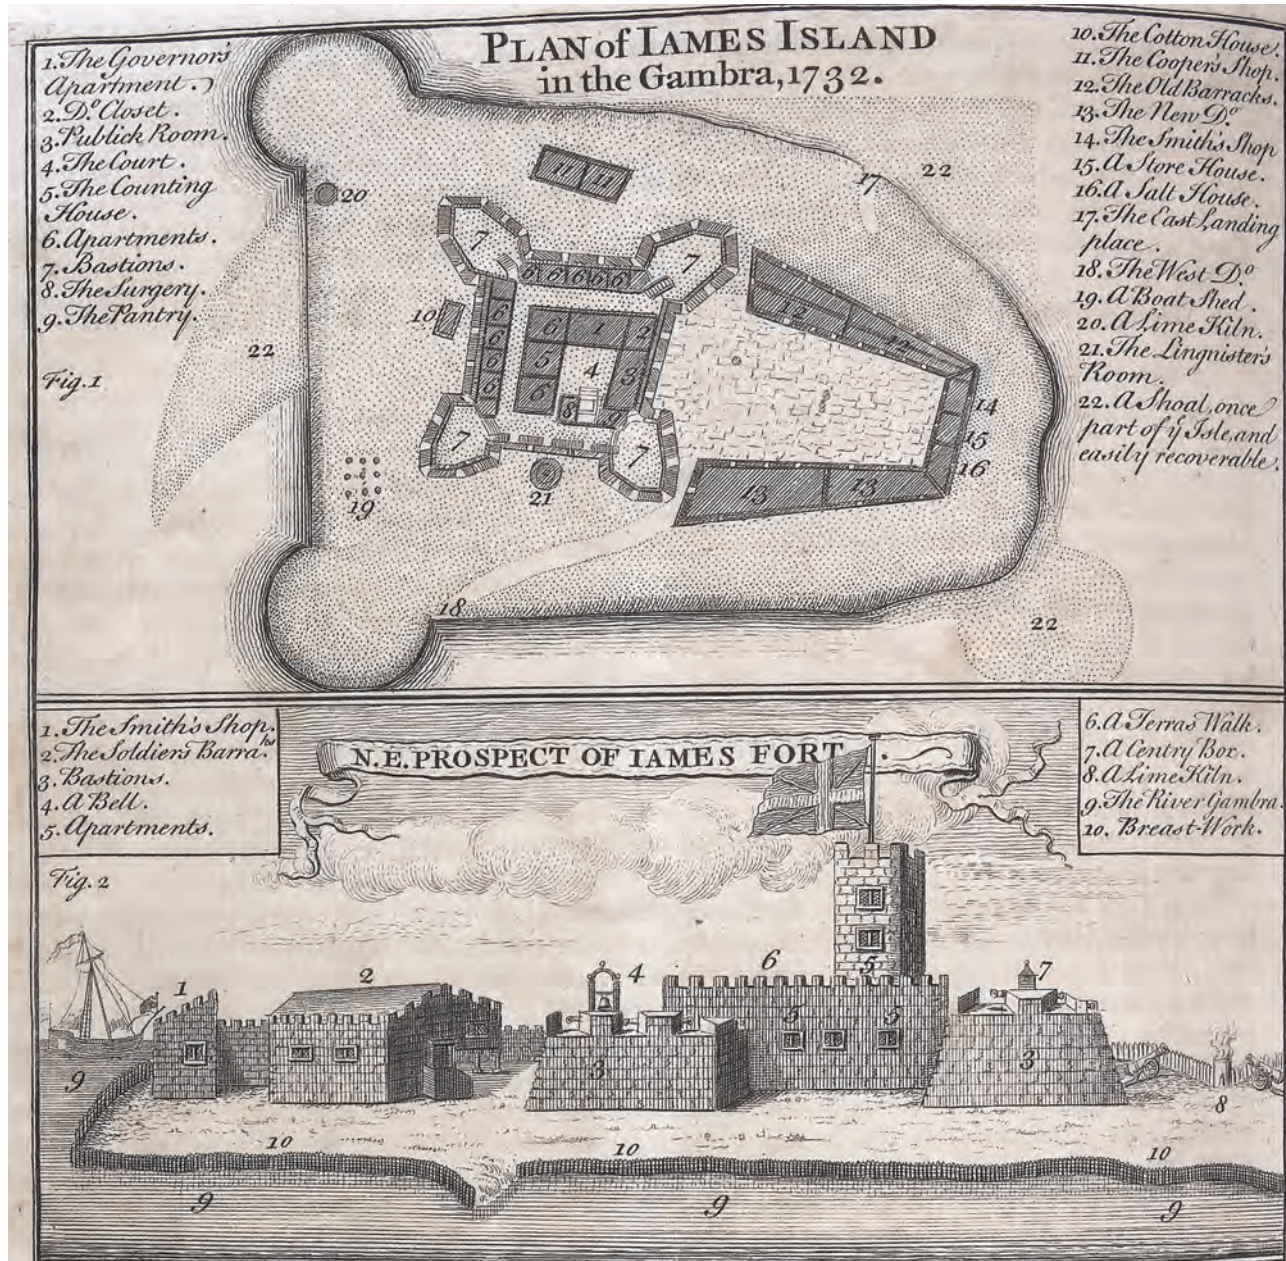 PLAN of IAMES ISLAND
in the Gambra, 1732.
1. The Governor's
Apartment.
2. Do. Closet.
3. Publick Room.
4. The Court.
5. The Counting
House.
6. Apartments.
7. Bastions.
8. The Surgery.
9. The Pantry.
Fig. 1
10. The Cotton House.
11. The Cooper's Shop.
12. The Old Barracks.
13. The New Do.
14. The Smith's Shop
15. A Store House.
16. A Salt House.
17. The East Landing
place.
18. The West Do.
19. A Boat Shed.
20. A Lime Kiln.
21. The Lingnister's
Room.
22. A Shoal, once
part of ye Isle, and
easily recoverable.
11 11
17
22
20
7
7
6 6 6 6 6
10
6
6
6
6
6 1 2
5
4
3
6
8
9
12
12
22
7
7
14
15
16
13 13
21
19
18
22
N.E. PROSPECT OF IAMES FORT.
1. The Smith's Shop.
2. The Soldiers Barraks.
3. Bastions.
4. A Bell.
5. Apartments.
6. A Terras Walk.
7. A Centry Box.
8. A Lime Kiln.
9. The River Gambra.
10. Breast-Work.
Fig. 2
1
2
4
6
5
7
5
5
3
3
9
8
10
10
10
9
9
9